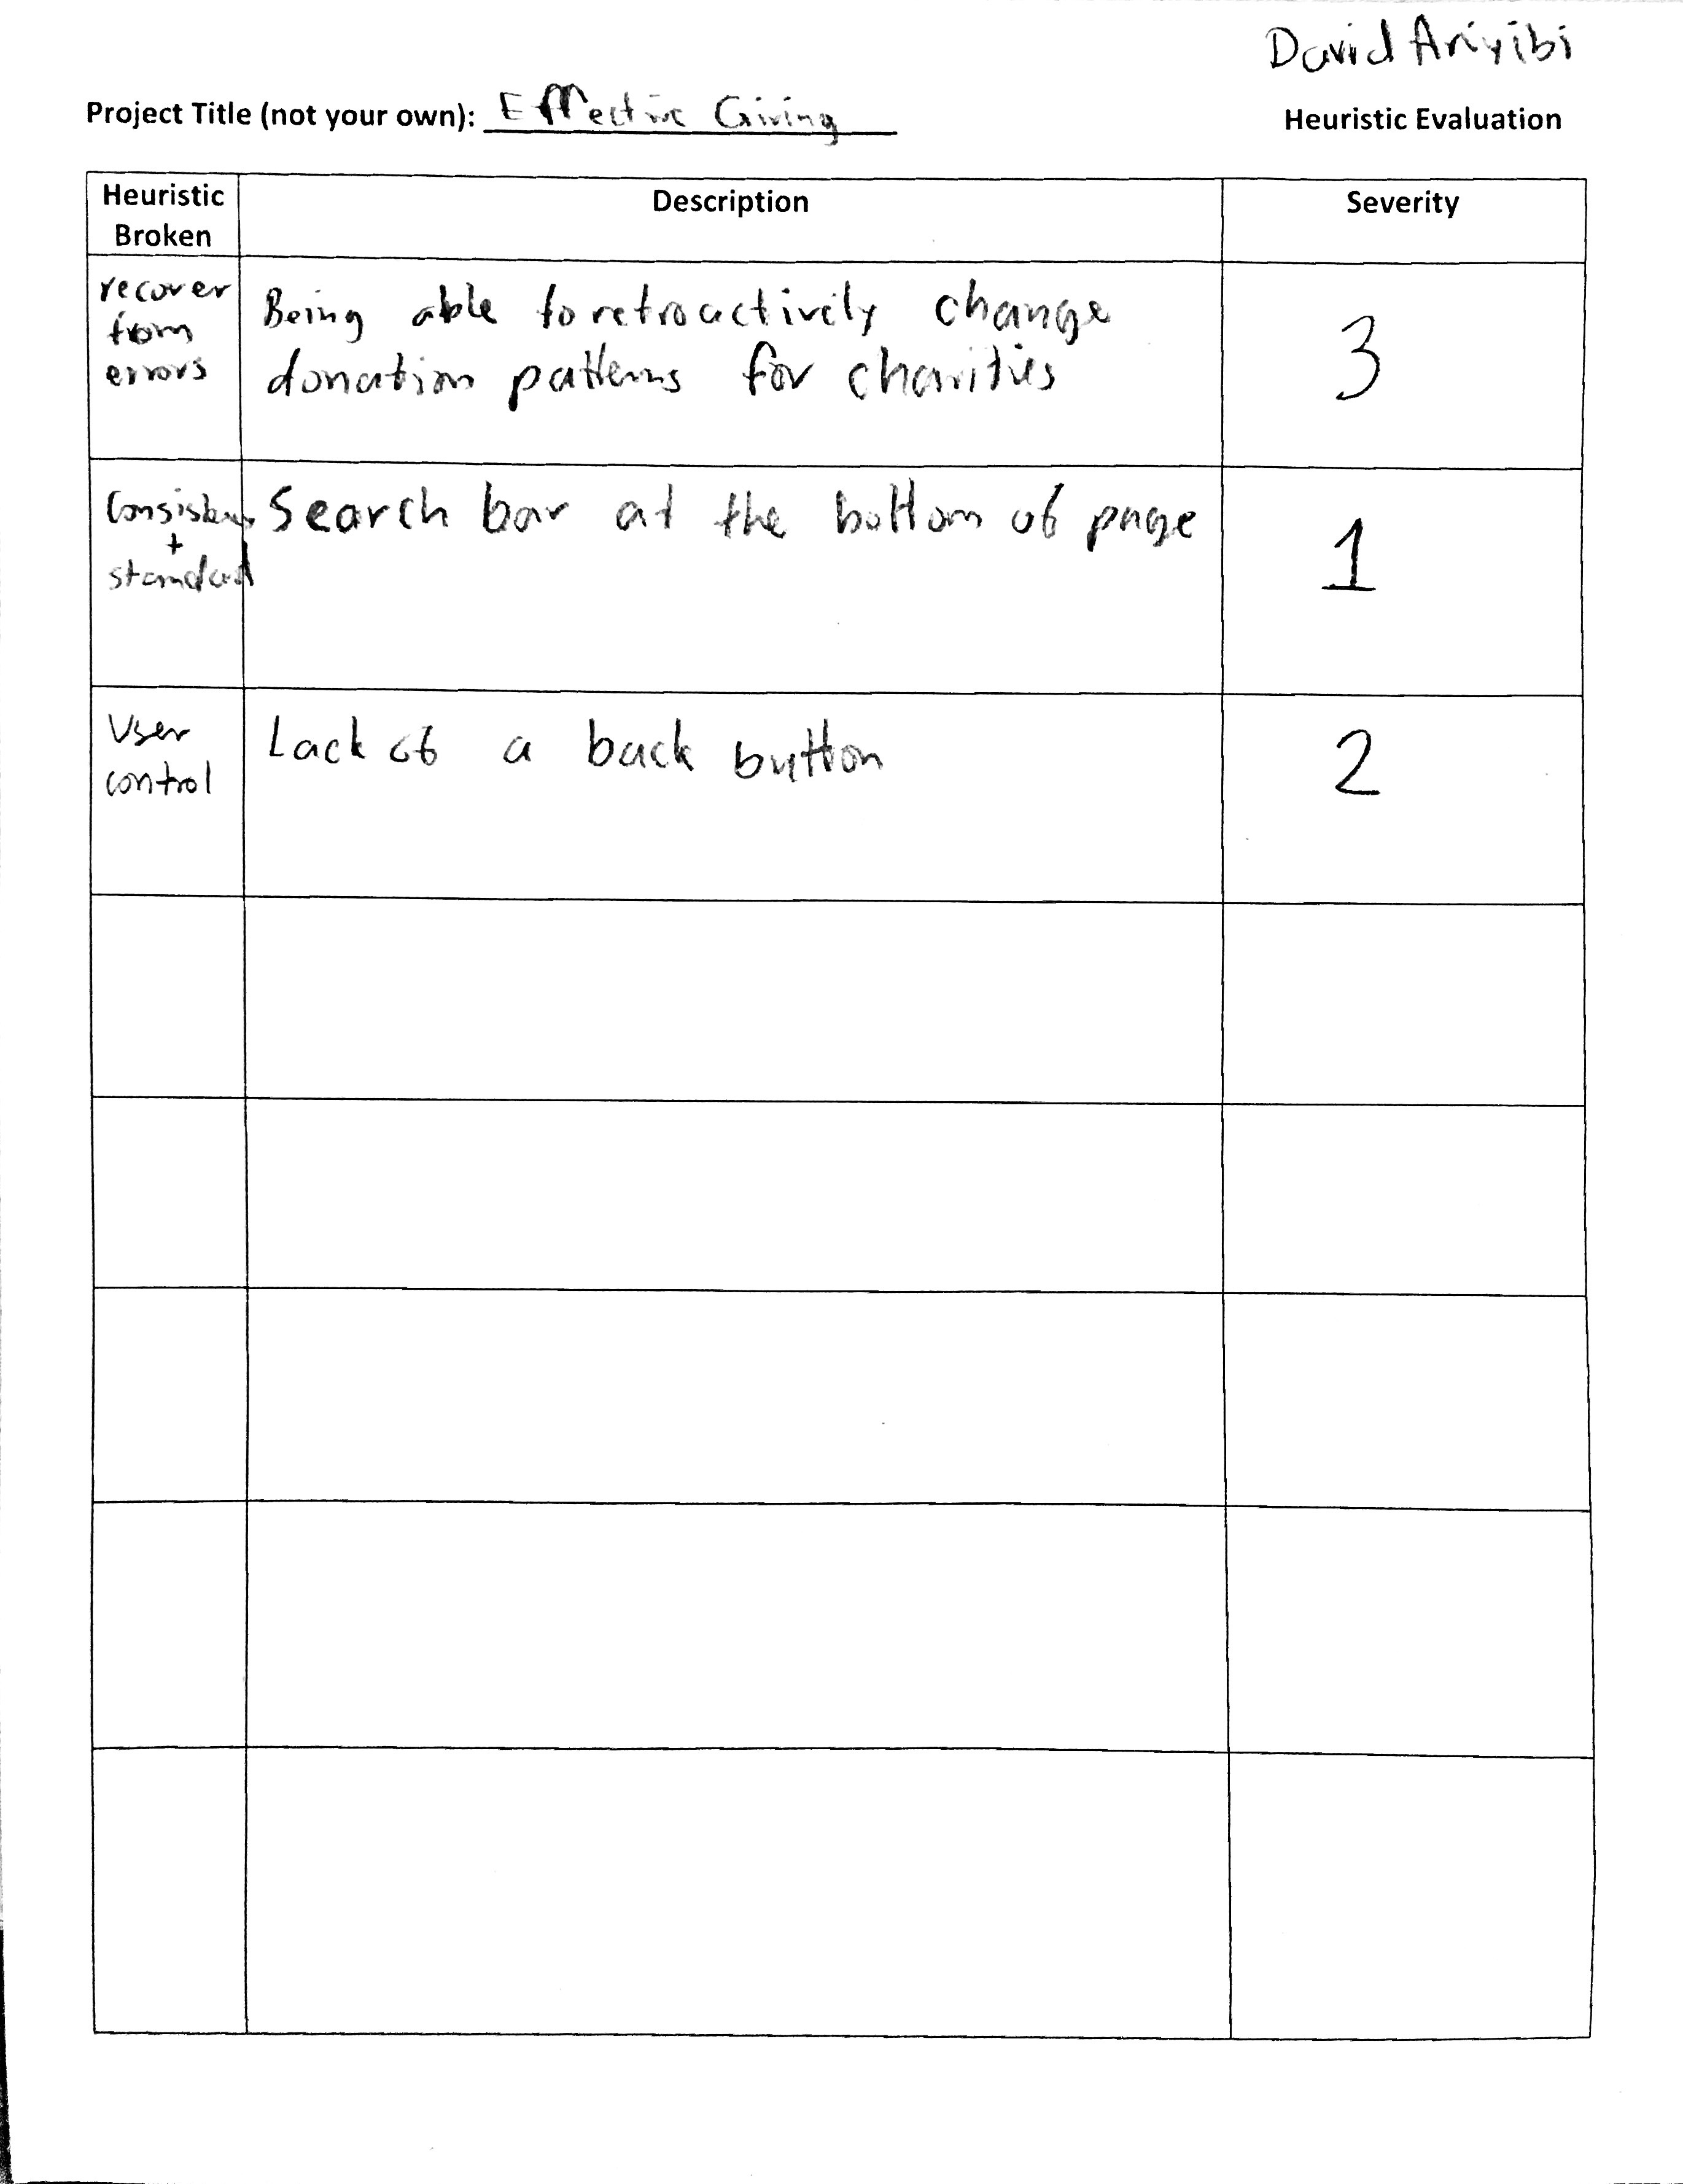 David Ariyibi
Project Title (not your own): Effective Giving
Heuristic Evaluation
Heuristic Broken
Description
Severity
recover
from
errors
Being able to retroactively change
donation patterns for charities
3
Consistency
+
standard
Search bar at the bottom of page
1
User
control
Lack of a back button
2